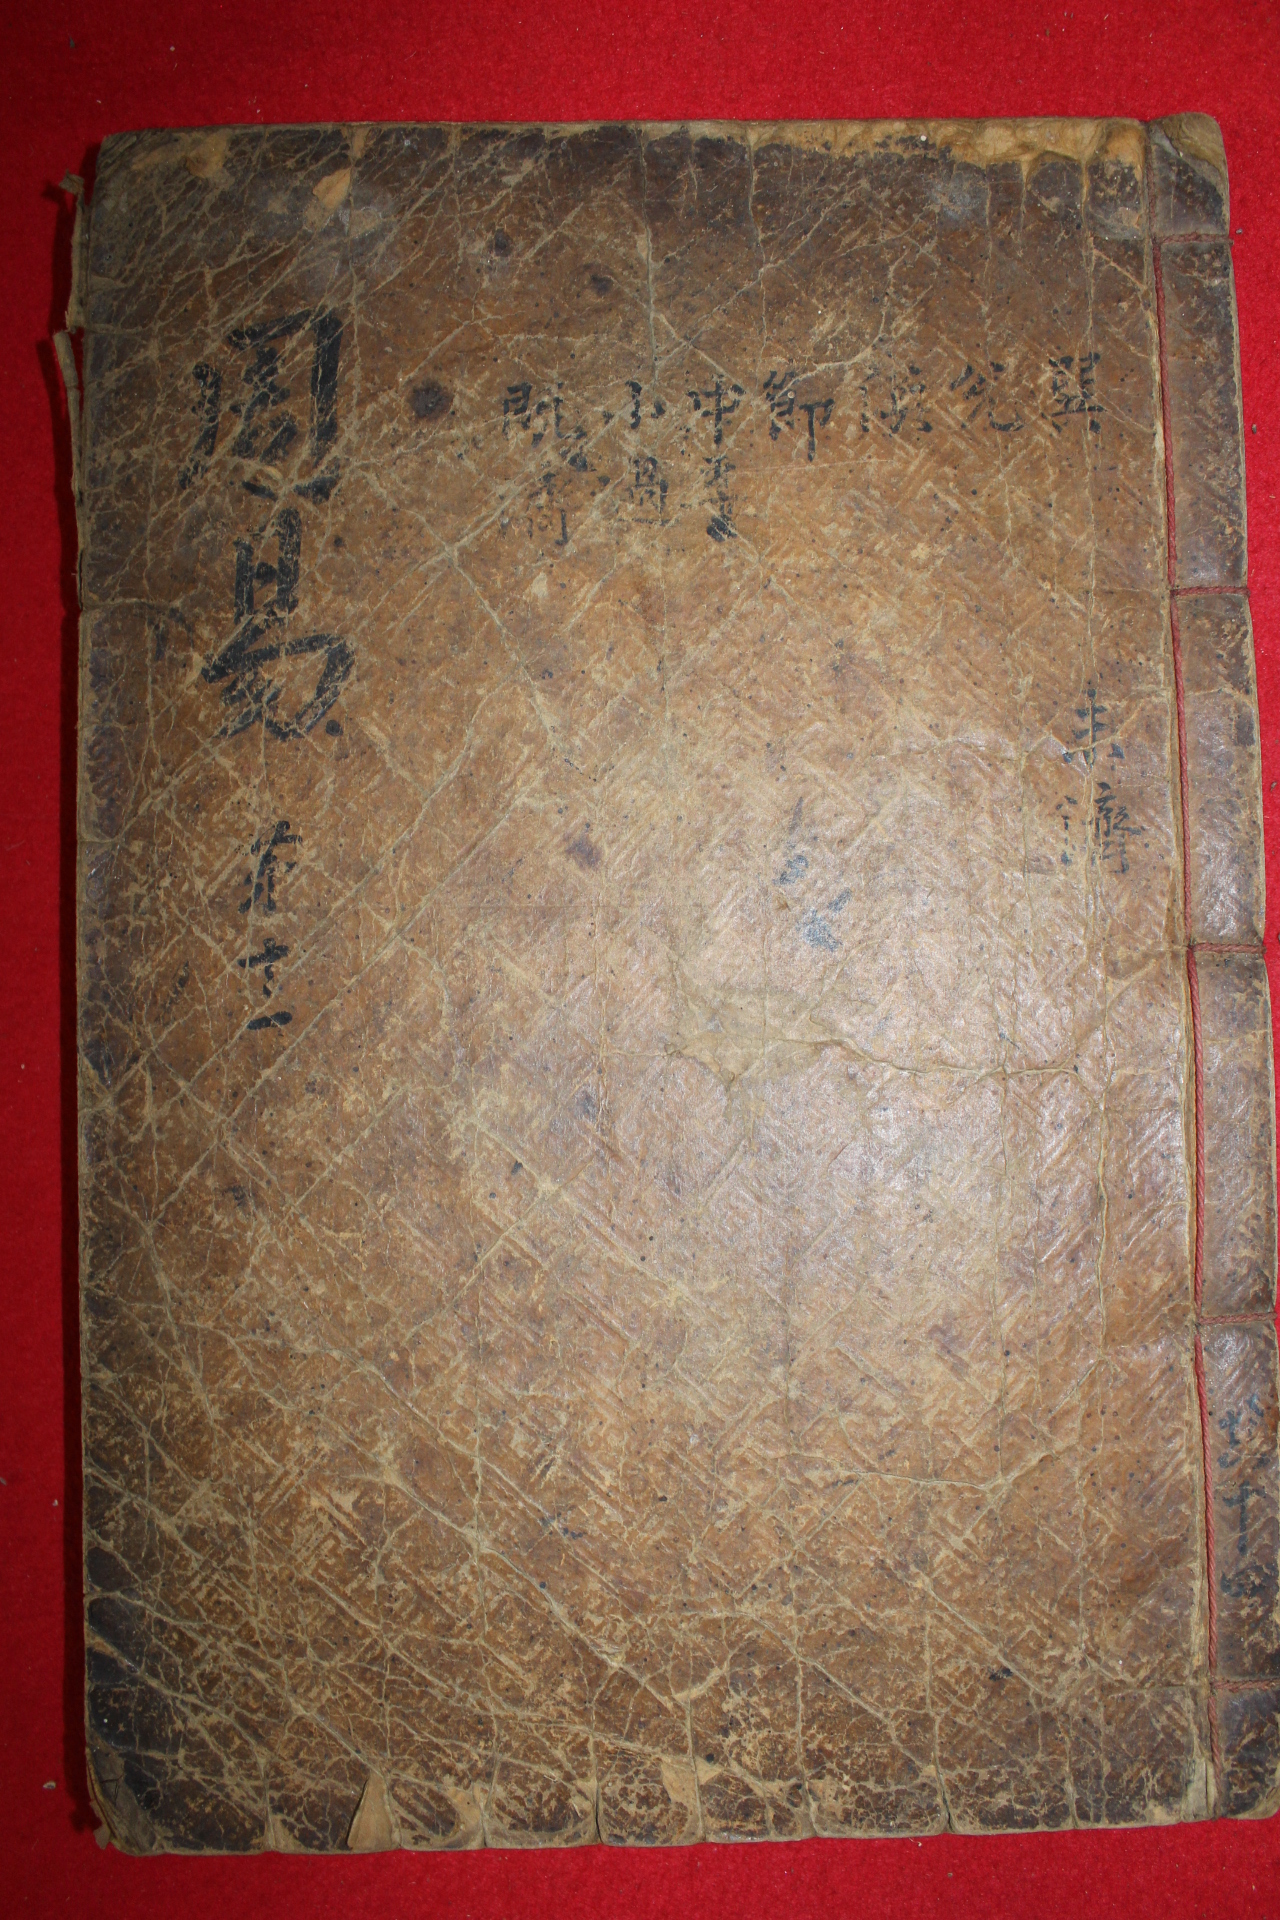 巽
兌
渙
節
中孚
小過
旣濟
未濟
周易 卷十二
共十四